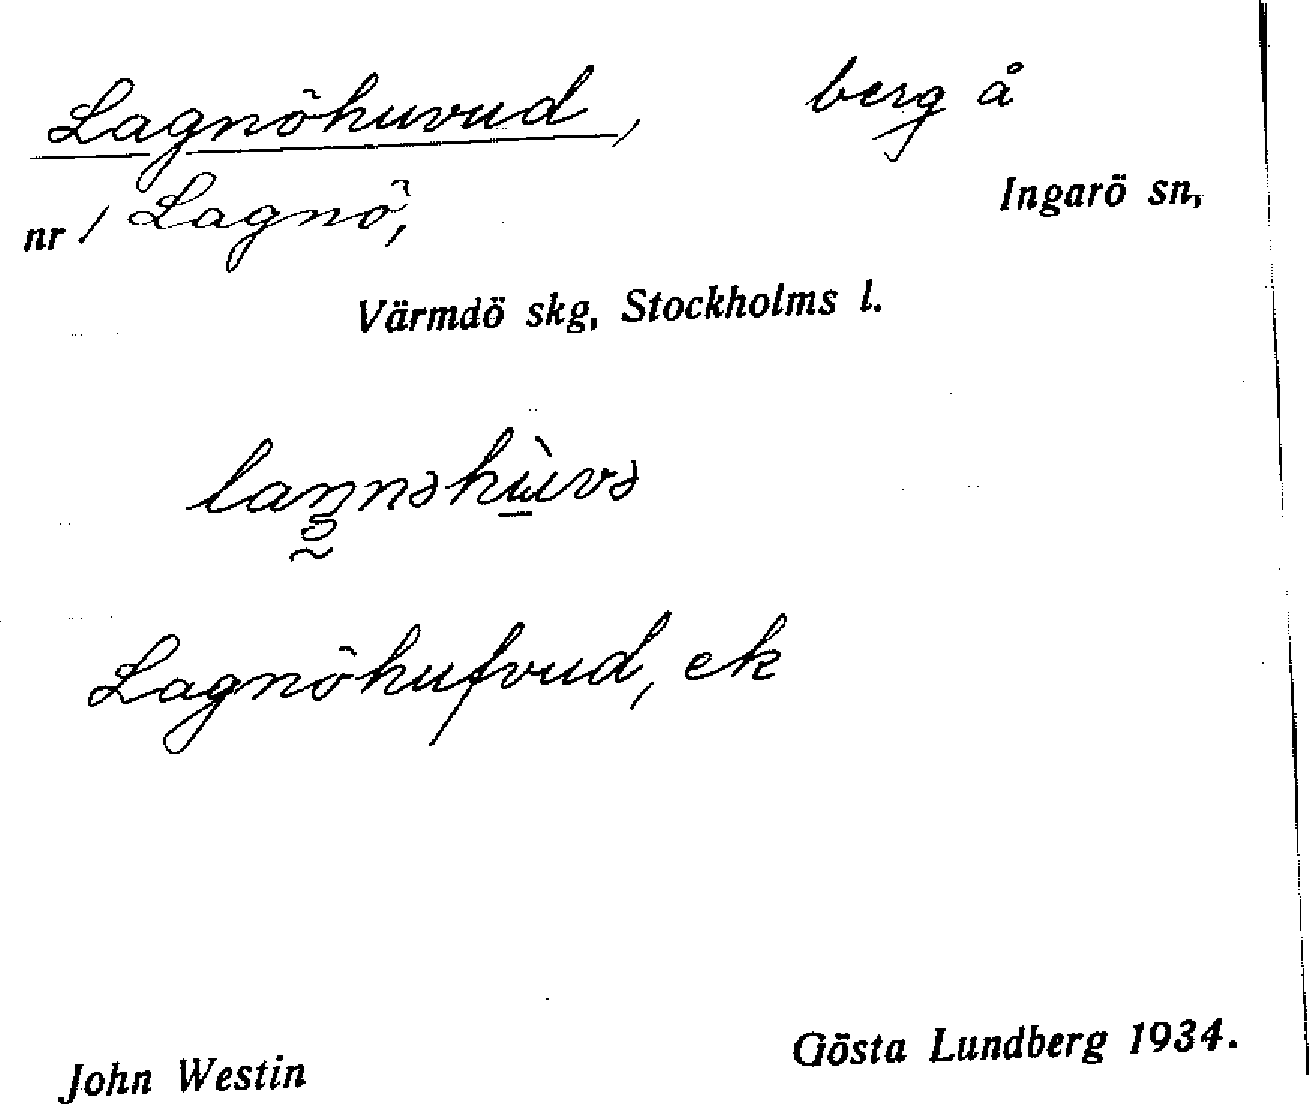 Lagnöhuvud, berg å
nr 1 Lagnö, Ingarö sn,
Värmdö skg, Stockholms l.
laŋnəhùvə
Lagnöhufvud, ek
John Westin Gösta Lundberg 1934.